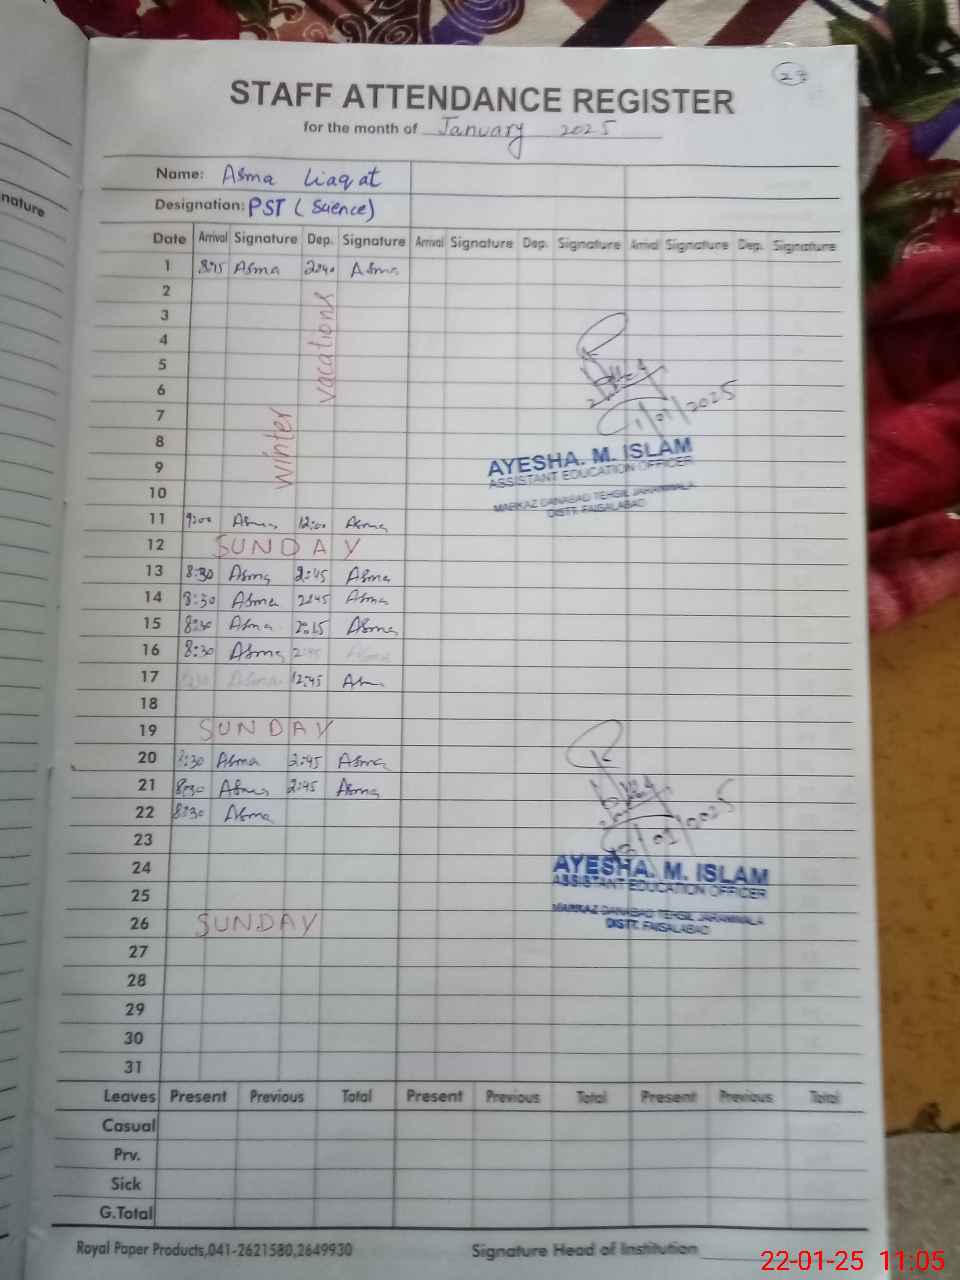 27
STAFF ATTENDANCE REGISTER
for the month of January 2025
nature
Name: Asma Liaqat
Designation: PST (Science)
Date Arrival Signature Dep. Signature Arrival Signature Dep. Signature Arrival Signature Dep. Signature
1 Asma 2:40 Asma
2
3
4
5
6
7
8
9
10
winter vacations
11 9:00 Asma 12:00 Asma
12 SUNDAY
13 8:30 Asma 2:45 Asma
14 8:30 Asma 2:45 Asma
15 8:30 Asma Asma
16 8:30 Asma 2:45 Asma
17 Asma 12:45 Asma
18
19 SUNDAY
20 8:30 Asma 2:45 Asma
21 8:30 Asma 2:45 Asma
22 8:30 Asma
23
24
25
26 SUNDAY
27
28
29
30
31
/01/2025
AYESHA. M. ISLAM
ASSISTANT EDUCATION OFFICER
MARKAZ DANABAD TEHSIL JARANWALA
DISTT. FAISALABAD
/01/2025
AYESHA. M. ISLAM
ASSISTANT EDUCATION OFFICER
MARKAZ DANABAD TEHSIL JARANWALA
DISTT. FAISALABAD
Leaves Present Previous Total Present Previous Total Present Previous Total
Casual
Prv.
Sick
G.Total
Royal Paper Products,041-2621580,2649930
Signature Head of Institution
22-01-25 11:05